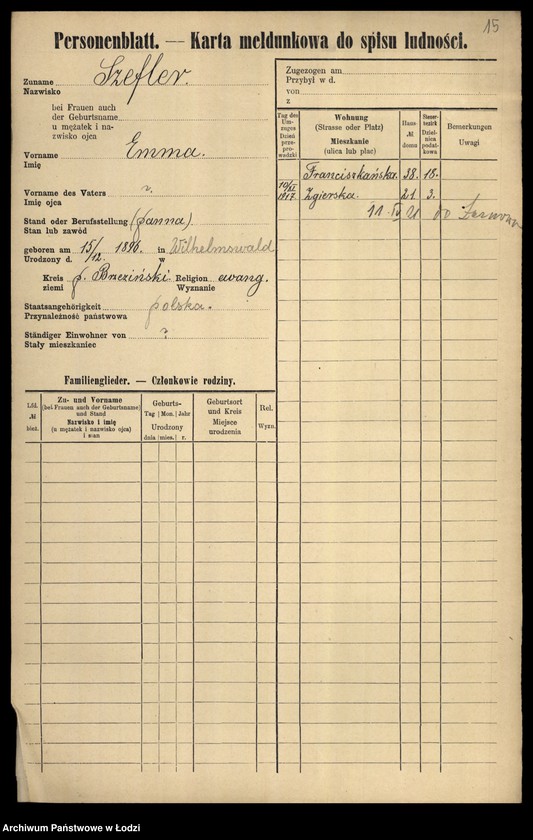 15
Personenblatt. — Karta meldunkowa do spisu ludności.
Zuname Szefler.
Nazwisko
bei Frauen auch
der Geburtsname
u mężatek i na-
zwisko ojca
Vorname Emma.
Imię
Vorname des Vaters ?.
Imię ojca
Stand oder Berufsstellung (panna).
Stan lub zawód
geboren am 15/12. 1896. in Wilhelmswald
Urodzony d. w
Kreis p. Brzeziński. Religion ewang.
ziemi Wyznanie
Staatsangehörigkeit polska.
Przynależność państwowa
Ständiger Einwohner von ?
Stały mieszkaniec
Familienglieder. — Członkowie rodziny.
Lfd. № bież.
Zu- und Vorname
(bei Frauen auch der Geburtsname)
und Stand
Nazwisko i imię
(u mężatek i nazwisko ojca)
i stan
Geburts-
Tag Mon. Jahr
Urodzony
dnia mies. r.
Geburtsort
und Kreis
Miejsce
urodzenia
Rel.
Wyzn.
Zugezogen am
Przybył w d.
von
z
Tag des
Um-
zuges
Dzień
prze-
prowadzki
Wohnung
(Strasse oder Platz)
Mieszkanie
(ulica lub plac)
Haus-
№
domu
Steuer-
bezirk
Dziel-
nica
podat-
kowa
Bemerkungen
Uwagi
Franciszkańska. 38. 18.
10/XI 1917. Zgierska. 21 3.
11. IV 21 do
Archiwum Państwowe w Łodzi